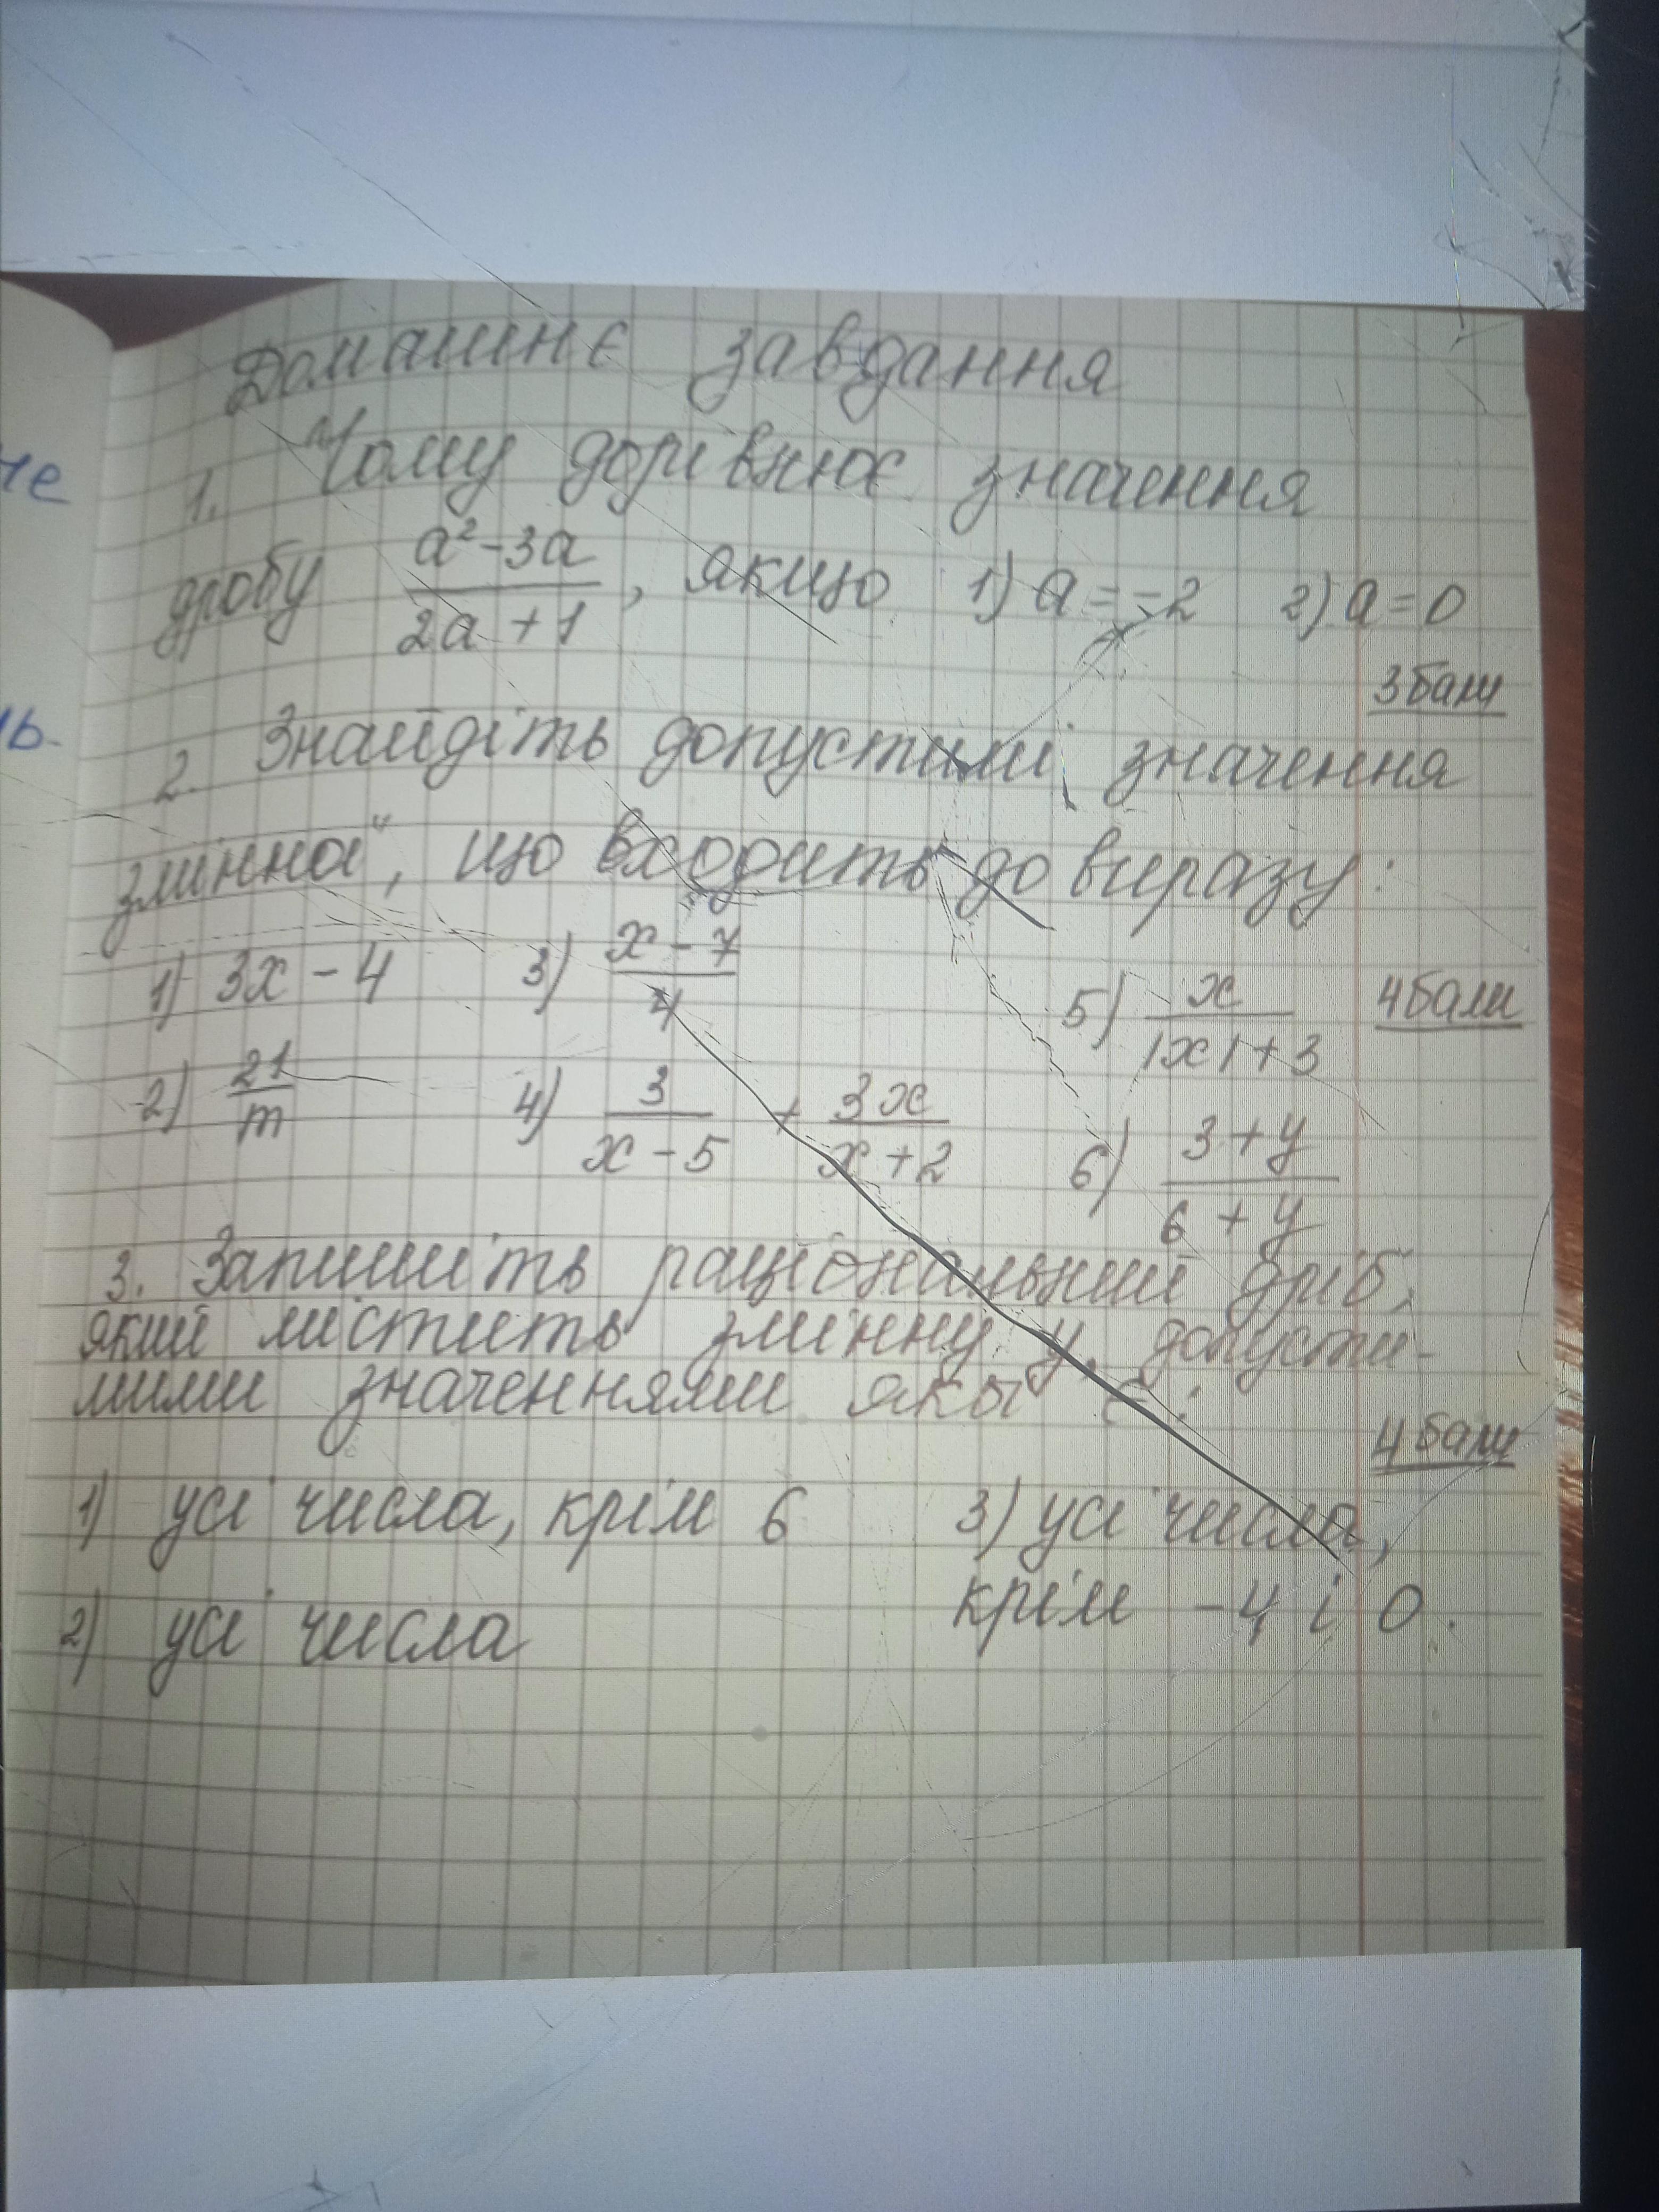 Домашнє завдання
1. Чому дорівнює значення
дробу \frac{a²-3a}{2a+1}, якщо 1) a=-2 2) a=0
3 бали
2. Знайдіть допустимі значення
змінної, що входить до виразу:
1) 3x-4 3) \frac{x-7}{4} 5) \frac{x}{|x|+3} 4 бали
2) \frac{21}{m} 4) \frac{3}{x-5} + \frac{3x}{x+2} 6) \frac{3+y}{6+y}
3. Запишіть раціональний дріб,
який містить змінну y, допусти-
мими значеннями якої є:
4 бали
1) усі числа, крім 6 3) усі числа,
крім -4 і 0.
2) усі числа
не
ь